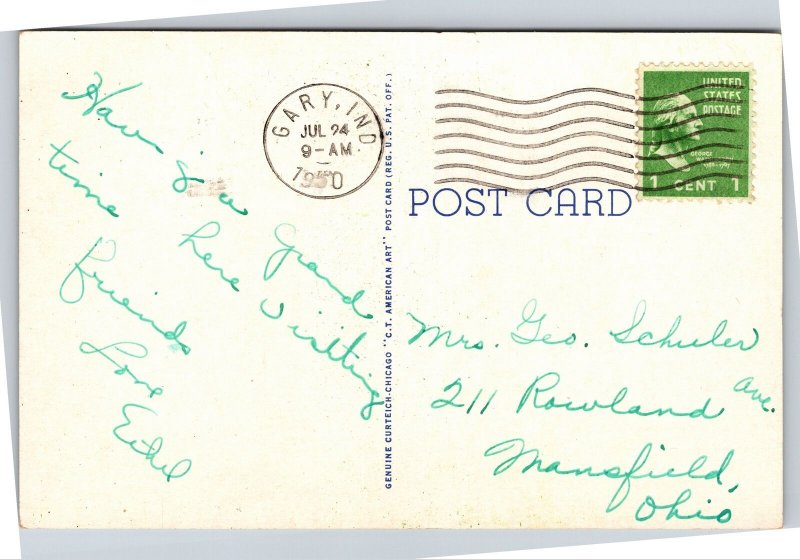 Having a grand
time here visiting
friends
Love
Ethel
GARY, IND
JUL 24
9-AM
1950
GENUINE CURTEICH-CHICAGO "C.T. AMERICAN ART" POST CARD (REG. U.S. PAT. OFF.)
UNITED
STATES
POSTAGE
GEORGE
1 CENT 1
POST CARD
Mrs. Geo. Schuler
211 Rowland Ave.
Mansfield,
Ohio